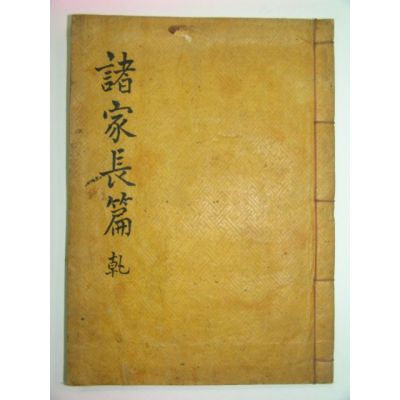 諸家長篇 乹